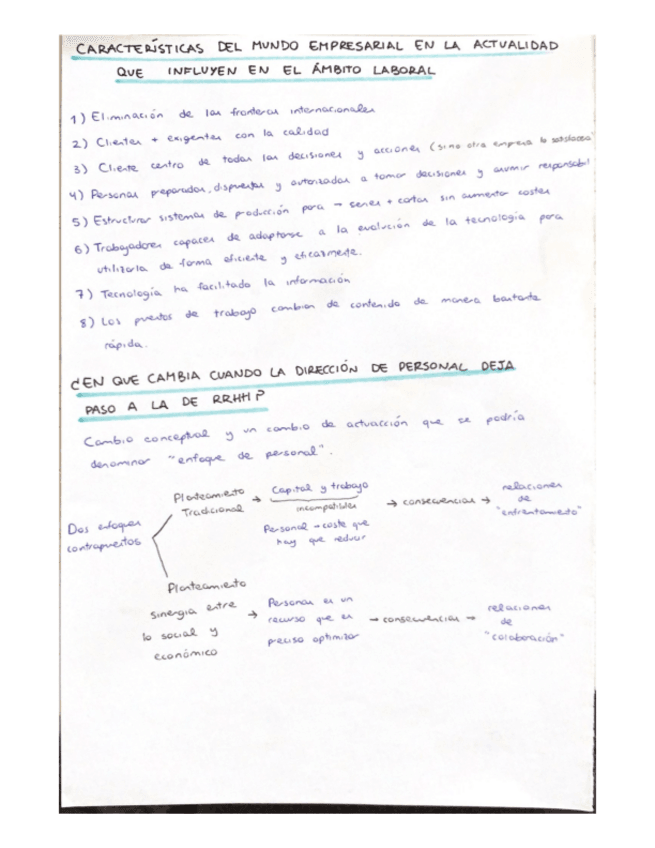 CARACTERÍSTICAS DEL MUNDO EMPRESARIAL EN LA ACTUALIDAD
QUE INFLUYEN EN EL ÁMBITO LABORAL
1) Eliminación de las fronteras internacionales
2) Clientes + exigentes con la calidad
3) Cliente centro de todas las decisiones y acciones (si no otra empresa lo satisfacea
4) Personas preparadas, dispuestas y autorizadas a tomar decisiones y asumir responsabil
5) Estructurar sistemas de producción para → series + cortas sin aumentar costes
6) Trabajadores capaces de adaptarse a la evolución de la tecnología para
utilizarla de forma eficiente y eficazmente.
7) Tecnología ha facilitado la información
8) Los puestos de trabajo cambian de contenido de manera bastante
rápida.
¿EN QUE CAMBIA CUANDO LA DIRECCIÓN DE PERSONAL DEJA
PASO A LA DE RRHH?
Cambio conceptual y un cambio de actuacción que se podría
denominar "enfoque de personal".
Dos enfoques
contrapuestos
Planteamiento
Tradicional
→ Capital y trabajo
incompatibles
Personal → coste que
hay que reducir
→ consecuencias →
relaciones
de
"enfrentamiento"
Planteamiento
sinergia entre
lo social y
económico
→ Personas es un
recurso que es
preciso optimizar
→ consecuencias →
relaciones
de
"colaboración"